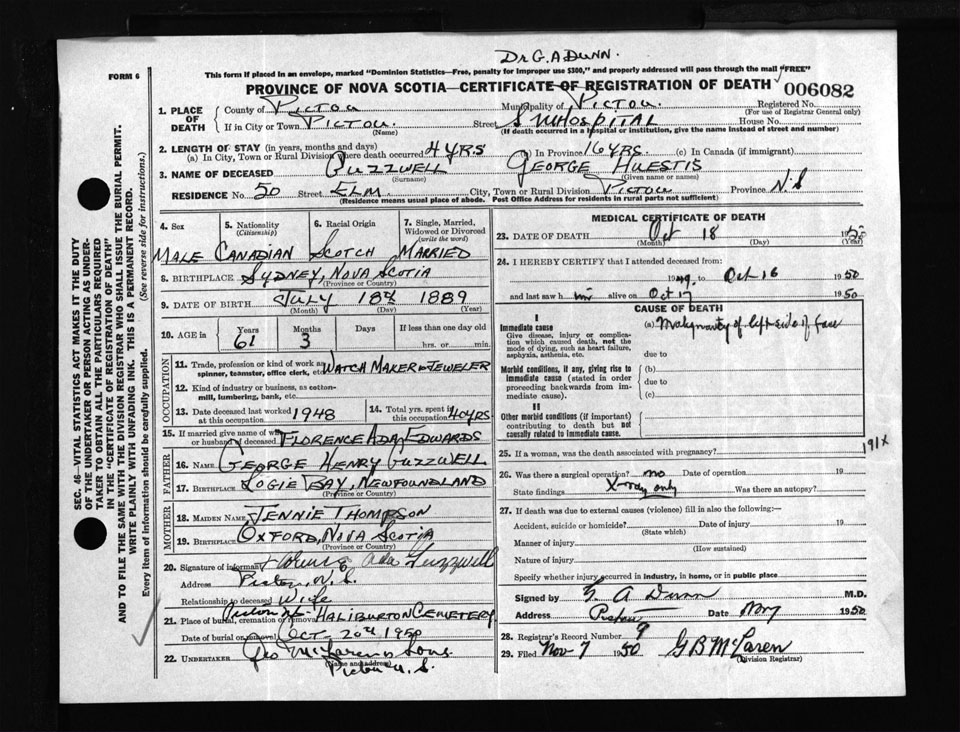 Dr G.A DUNN.
FORM 6
This form if placed in an envelope, marked "Dominion Statistics—Free, penalty for improper use $300," and properly addressed will pass through the mail "FREE"
PROVINCE OF NOVA SCOTIA—CERTIFICATE OF REGISTRATION OF DEATH
006082
1. PLACE OF DEATH County of PICTOU Municipality of PICTOU. Registered No.
(For use of Registrar General only)
If in City or Town PICTOU. Street S M HOSPITAL House No.
(Name) (If death occurred in a hospital or institution, give the name instead of street and number)
2. LENGTH OF STAY (in years, months and days)
(a) In City, Town or Rural Division where death occurred 4 YRS (b) In Province 16 YRS. (c) In Canada (if immigrant)
3. NAME OF DECEASED GUZZWELL GEORGE HUESTIS
(Surname) (Given name or names)
RESIDENCE No. 50 Street ELM City, Town or Rural Division PICTOU Province N.S
(Residence means usual place of abode. Post Office Address for residents in rural parts not sufficient)
4. Sex 5. Nationality (Citizenship) 6. Racial Origin 7. Single, Married, Widowed or Divorced (write the word)
MALE CANADIAN SCOTCH MARRIED
8. BIRTHPLACE SYDNEY, NOVA SCOTIA
(Province or Country)
9. DATE OF BIRTH JULY 18th 1889
(Month) (Day) (Year)
10. AGE in Years Months Days If less than one day old
61 3 hrs. or min.
OCCUPATION
11. Trade, profession or kind of work as spinner, teamster, office clerk, etc. WATCH MAKER & JEWELER
12. Kind of industry or business, as cotton-mill, lumbering, bank, etc.
13. Date deceased last worked at this occupation 1948
14. Total yrs. spent in this occupation 40 YRS
15. If married give name of wife or husband of deceased FLORENCE ADA EDWARDS
FATHER
16. NAME GEORGE HENRY GUZZWELL
17. BIRTHPLACE LOGIE BAY, NEWFOUNDLAND
(Province or Country)
MOTHER
18. MAIDEN NAME JENNIE THOMPSON
19. BIRTHPLACE OXFORD, NOVA SCOTIA
(Province or Country)
20. Signature of informant Florence Ada Guzzwell
Address Pictou, N.S.
Relationship to deceased Wife
21. Place of burial, cremation or removal Pictou HALIBURTON CEMETERY
Date of burial or removal OCT- 20th 1950
22. UNDERTAKER Geo McLaren & Sons.
(Name and address)
Pictou N.S.
MEDICAL CERTIFICATE OF DEATH
23. DATE OF DEATH Oct 18 1950
(Month) (Day) (Year)
24. I HEREBY CERTIFY that I attended deceased from:
1949. to Oct 16 1950
and last saw him alive on Oct 17 1950
CAUSE OF DEATH
I
Immediate cause
Give disease, injury or complication which caused death, not the mode of dying, such as heart failure, asphyxia, asthenia, etc.
(a) Malignancy of left side of face
due to
Morbid conditions, if any, giving rise to immediate cause (stated in order proceeding backwards from immediate cause).
(b)
due to
(c)
II
Other morbid conditions (if important) contributing to death but not causally related to immediate cause.
25. If a woman, was the death associated with pregnancy?
191X
26. Was there a surgical operation? no Date of operation 19
State findings X-ray only Was there an autopsy?
27. If death was due to external causes (violence) fill in also the following:—
Accident, suicide or homicide? Date of injury 19
(State which)
Manner of injury
(How sustained)
Nature of injury
Specify whether injury occurred in industry, in home, or in public place
Signed by G A Dunn M.D.
Address Pictou Date Nov 7 1950
28. Registrar's Record Number 9
29. Filed Nov 7 1950 G B McLaren
(Division Registrar)
SEC. 46—VITAL STATISTICS ACT MAKES IT THE DUTY OF THE UNDERTAKER OR PERSON ACTING AS UNDERTAKER TO OBTAIN ALL THE PARTICULARS REQUIRED IN THE "CERTIFICATE OF REGISTRATION OF DEATH" AND TO FILE THE SAME WITH THE DIVISION REGISTRAR WHO SHALL ISSUE THE BURIAL PERMIT.
WRITE PLAINLY WITH UNFADING INK. THIS IS A PERMANENT RECORD.
Every item of information should be carefully supplied. (See reverse side for instructions.)